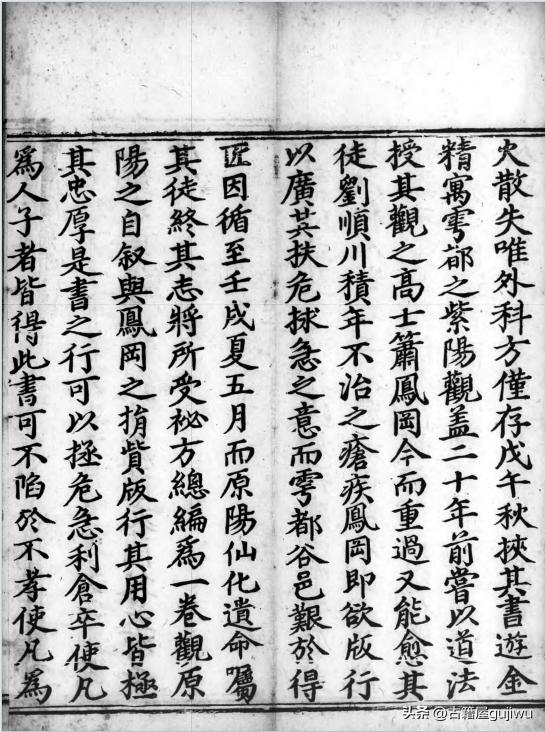 火散失唯外科方僅存戊午秋挾其書遊金
精寓雩都之紫陽觀盖二十年前嘗以道法
授其觀之高士簫鳳岡今而重過又能愈其
徒劉順川積年不治之瘡疾鳳岡即欲版行
以廣其扶危捄急之意而雩都谷邑艱於得
匠因循至壬戌夏五月而原陽仙化遺命囑
其徒終其志將所受祕方總編爲一卷觀原
陽之自叙與鳳岡之捐貲版行其用心皆極
其忠厚是書之行可以拯危急利倉卒使凡
爲人子者皆得此書可不陷於不孝使凡爲
头条 @古籍屋gujiwu